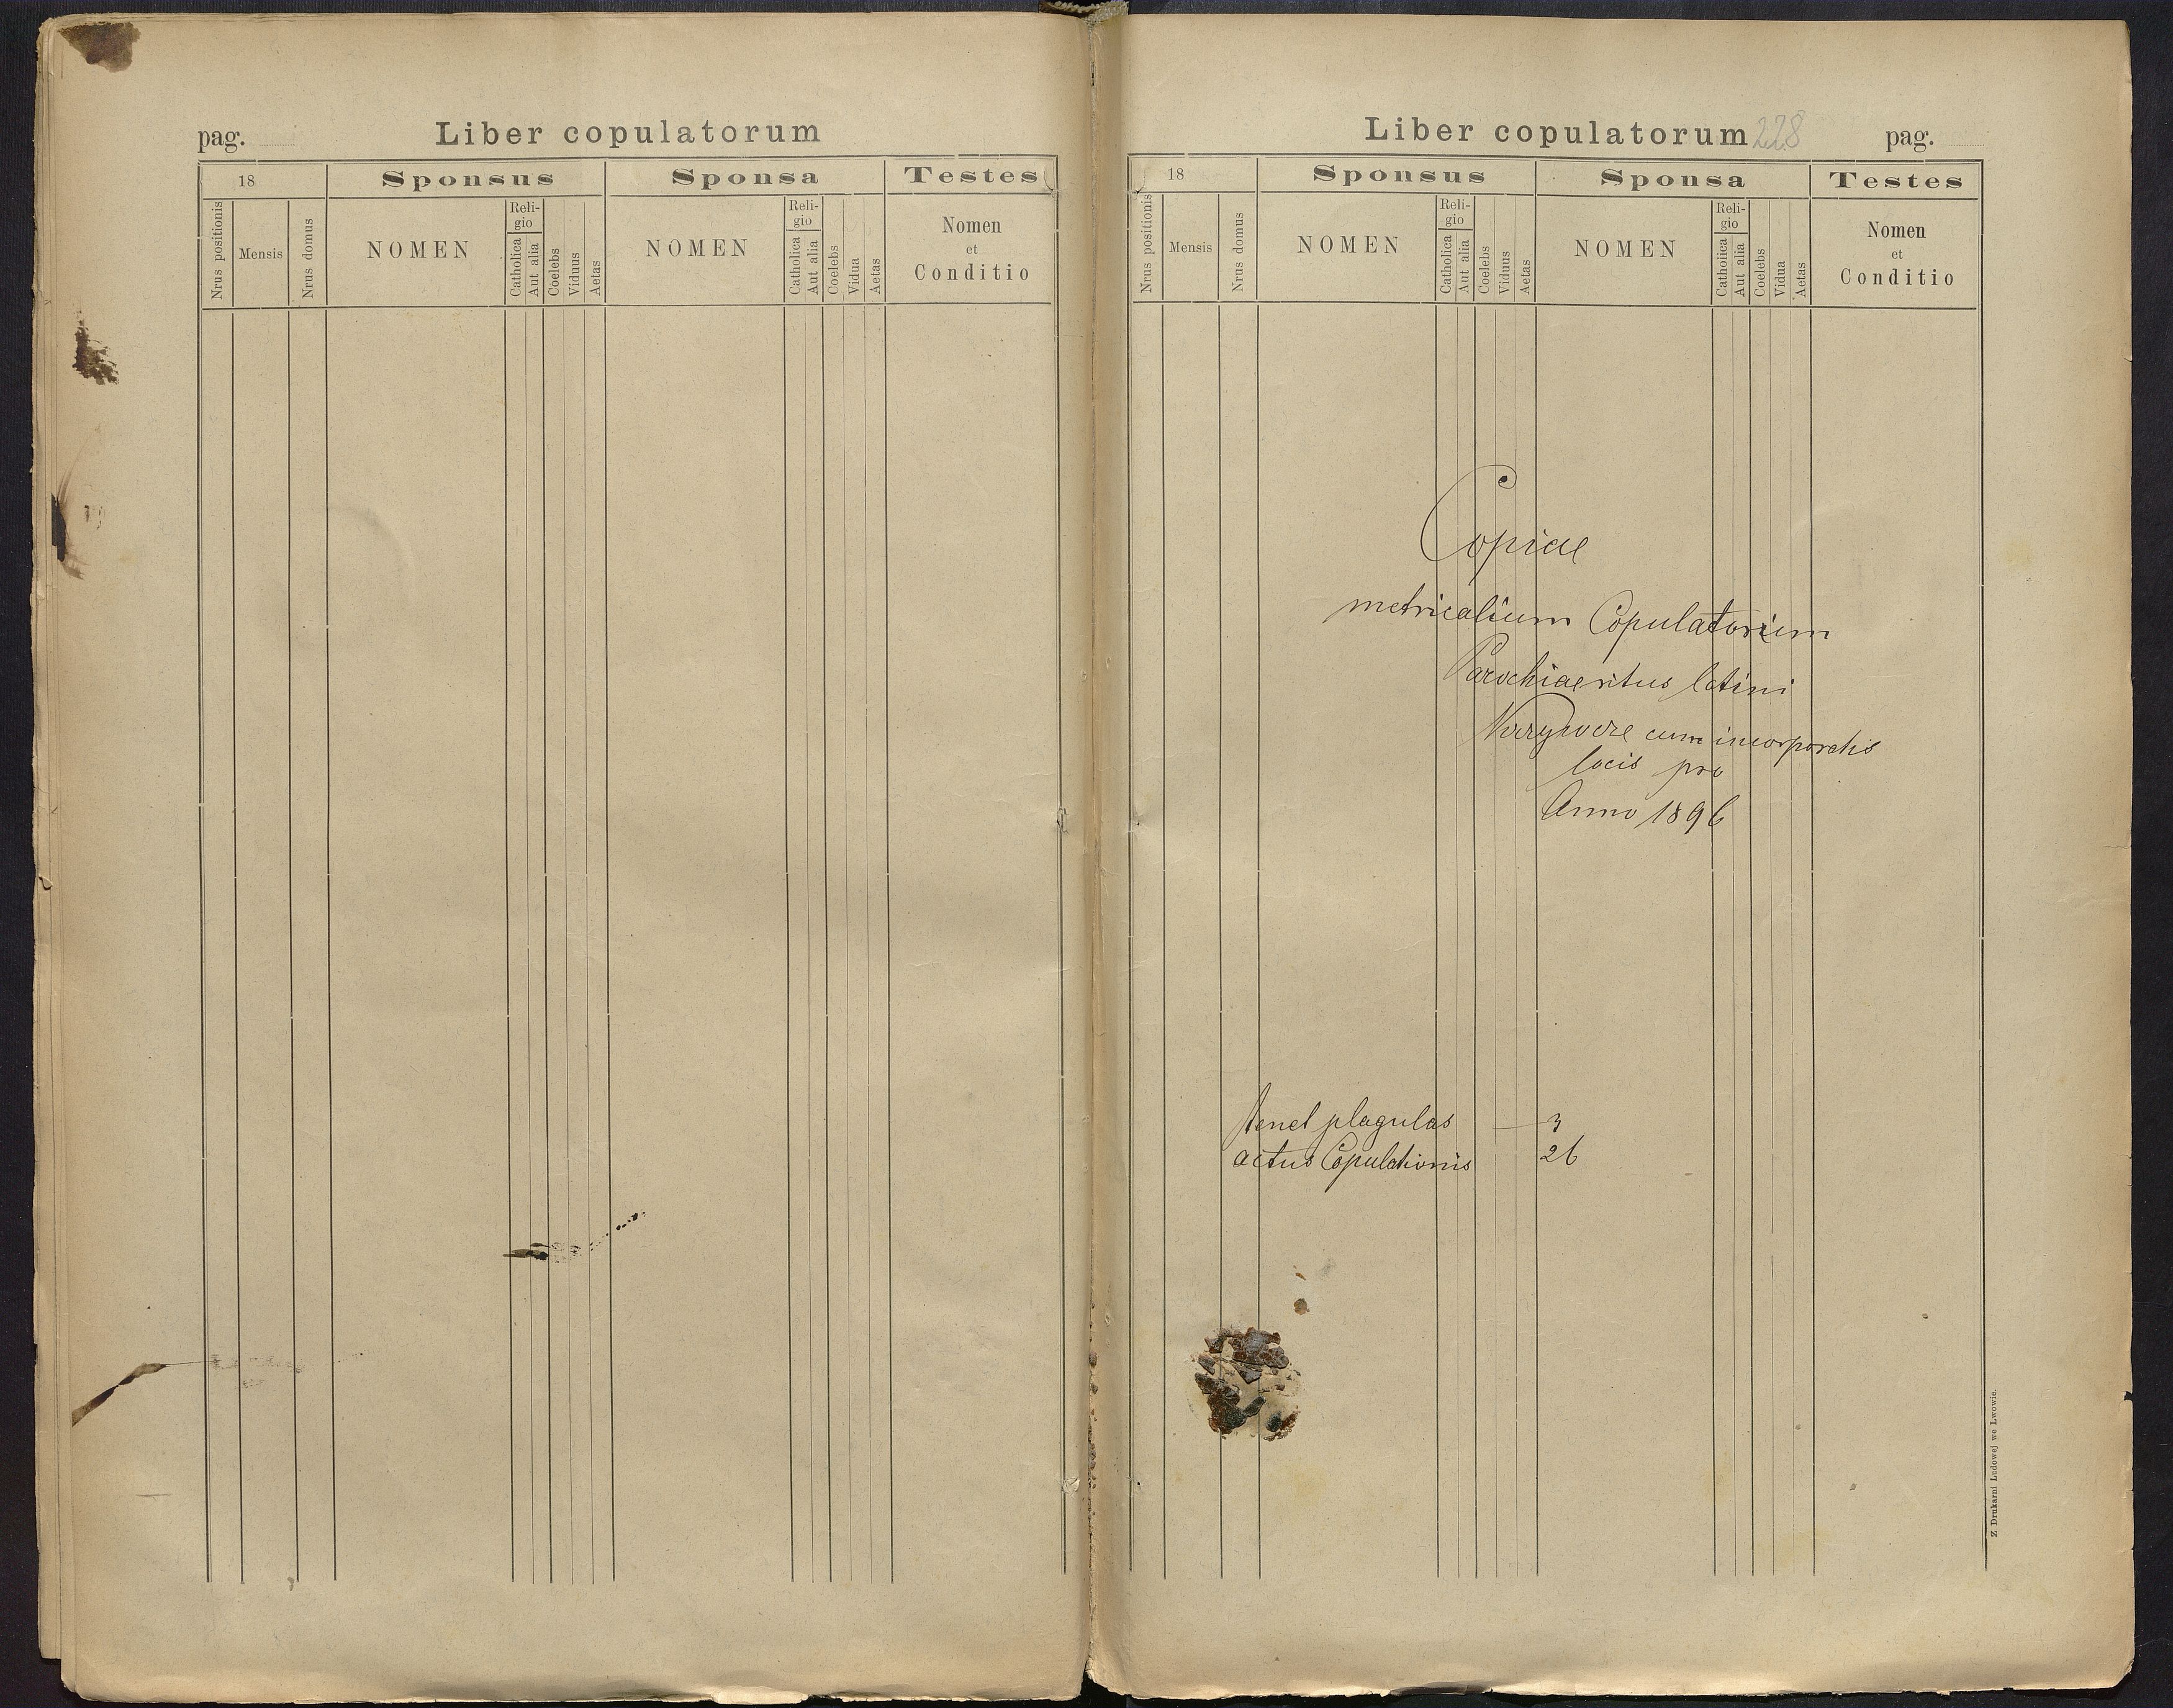 pag.
Liber copulatorum
18
Sponsus
Sponsa
Testes
Nrus positionis
Mensis
Nrus domus
NOMEN
Reli-
gio
Catholica
Aut alia
Coelebs
Viduus
Aetas
NOMEN
Reli-
gio
Catholica
Aut alia
Coelebs
Vidua
Aetas
Nomen
et
Conditio
Liber copulatorum 228
pag.
18
Sponsus
Sponsa
Testes
Nrus positionis
Mensis
Nrus domus
NOMEN
Reli-
gio
Catholica
Aut alia
Coelebs
Viduus
Aetas
NOMEN
Reli-
gio
Catholica
Aut alia
Coelebs
Vidua
Aetas
Nomen
et
Conditio
Copiae
metricalium Copulatorum
Parochiae ritus latini
cum incorporatis
locis pro
Anno 1896
tenet plagulas — 3
actus Copulationis 26
Z Drukarni Ludowej we Lwowie.